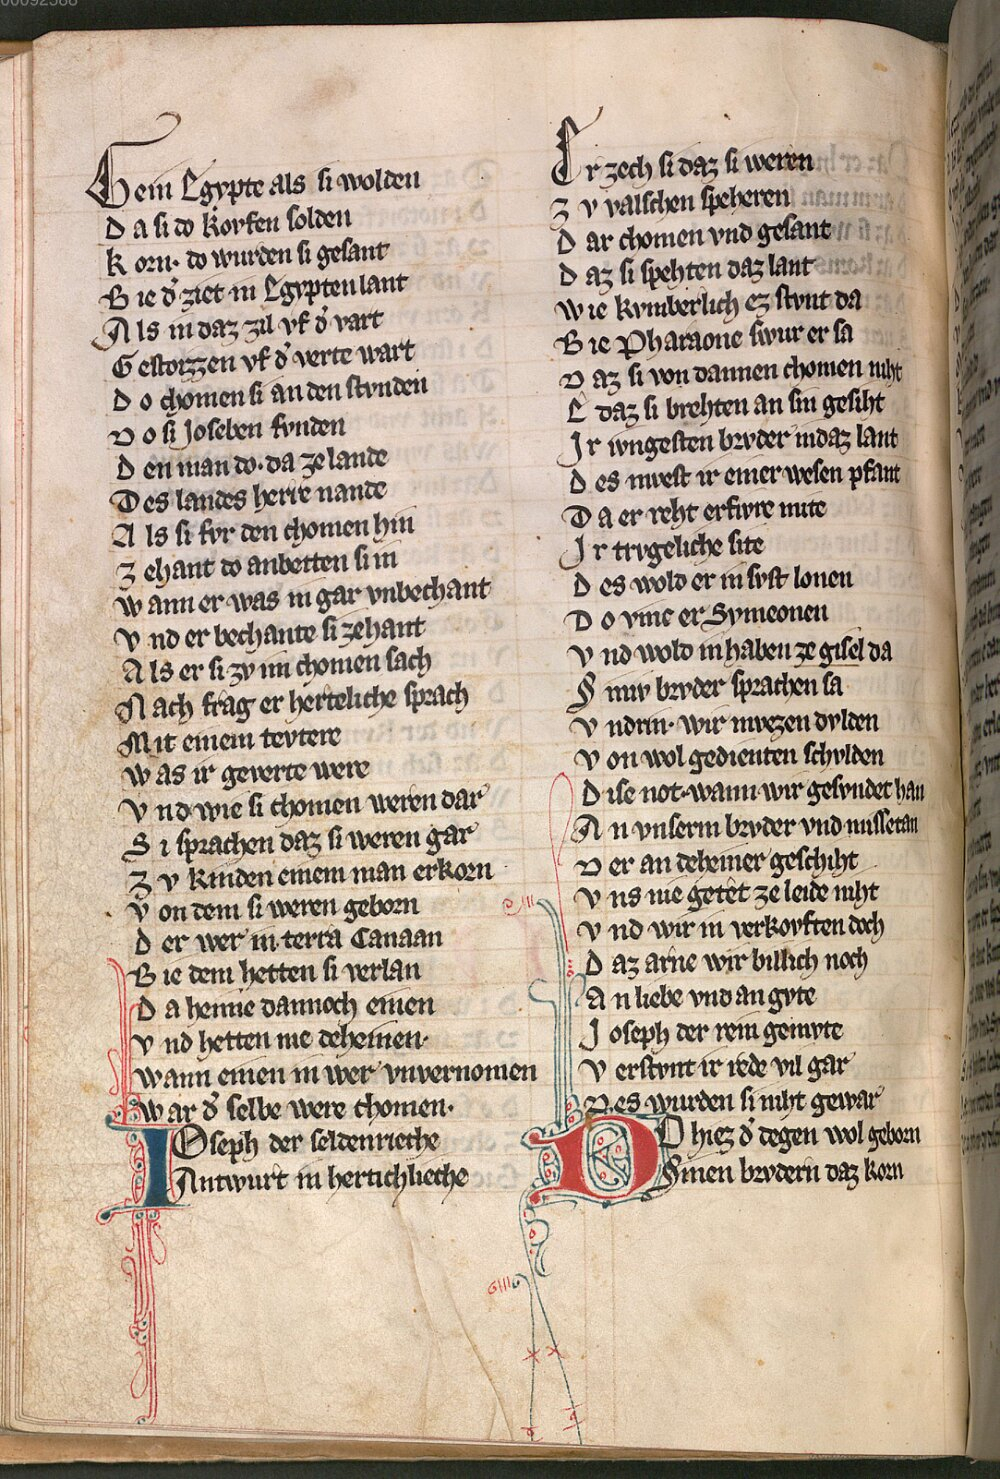 00092588
Gein Egypte als si wolden
Da si do kovfen solden
Korn· do wurden si gesant
Bie d̕ ziet in Egypten lant
Als in daz zil vf d̕ vart
Gestozzen vf d̕ verte wart
Do chomen si an den stvnden
Do si Joseben fvnden
Den man do· da ze lande
Des landes herre nande
Als si fvr den chomen hin
Zehant do anbetten si in
Wann er was in gar vnbechant
Vnd er bechante si zehant
Als er si zv im chomen sach
Nach frag er herteliche sprach
Mit einem tevtere
Was ir geverte were
Vnd wie si chomen weren dar
Si sprachen daz si weren gar
Zv kinden einem man erkorn
Von dem si weren geborn
Der wer in terra Canaan
Bie dem hetten si verlan
Da heime dannoch einen
Vnd hetten nie deheinen·
Wann einen in wer vnvernomen
War d̕ selbe were chomen·
IOseph der seldenrieche
Antwurt in hertichlieche
Er zech si daz si weren
Zv valschen speheren
Dar chomen vnd gesant
Daz si spehten daz lant
Wie kvmberlich ez stvnt da
Bie Pharaone swur er sa
Daz si von dannen chomen niht
E daz si brehten an sin gesiht
Ir ivngesten brvder in daz lant
Des mvest ir einer wesen pfant
Da er reht erfivre mite
Ir trvgeliche site
Des wold er in svst lonen
Do vinc er Symeonen
Vnd wold in haben ze gisel da
Siniv brvder sprachen sa
Vndr in· wir mvezen dvlden
Von wol gedienten schvlden
Dise not· wann wir gesvndet han
An vnserm brvder vnd missetan
Der an deheiner geschiht
Vns nie getet ze leide niht
Vnd wir in verkovften doch
Daz arne wir billich noch
An liebe vnd an gvte
Joseph der rein gemvte
Verstvnt ir rede vil gar
Des wurden si niht gewar
DO hiez d̕ degen wol geborn
Sinen brvdern daz korn